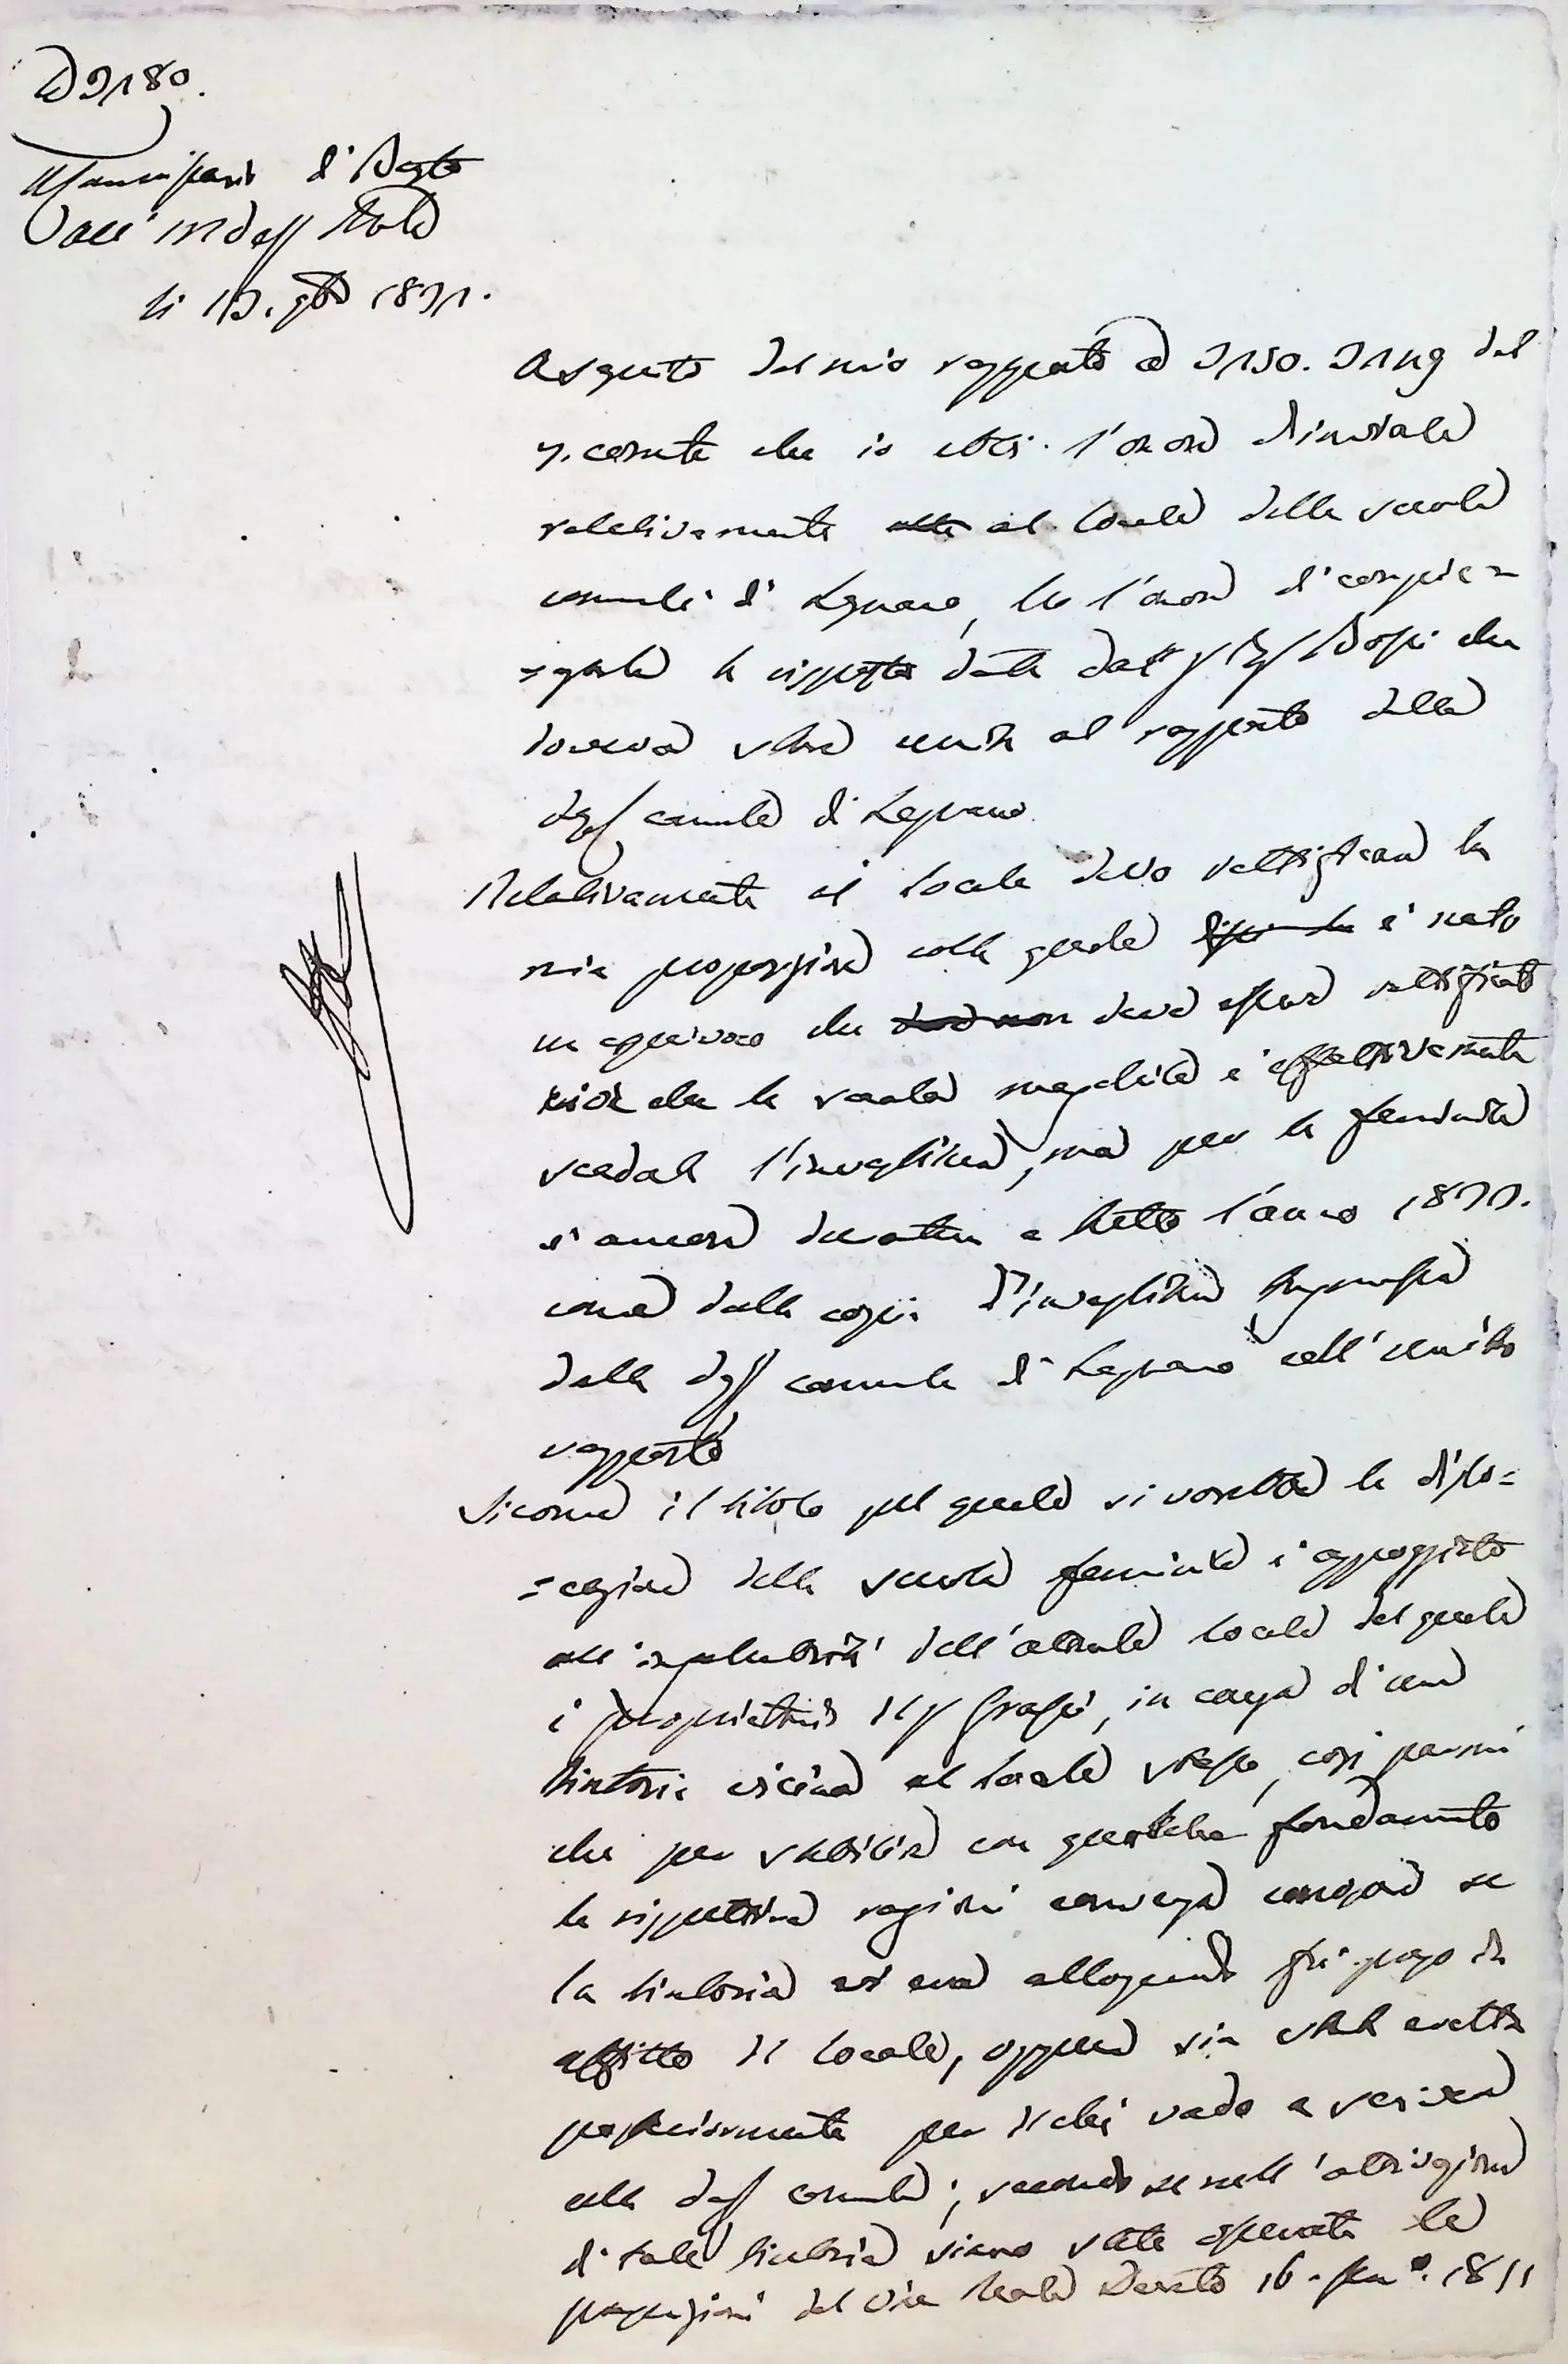 2180.
Commissario di Busto
All' I. R. Deleg.
li 12. 1831.
A seguito del mio rapporto a 2150. 2149 del
p. corrente che io ebbi l'onore d'inviale
relativamente alla al locale della scuola
comunle di Legnano, ho l'onore di compie=
=garle la risposta data dal Bossi che
doveva essere unita al rapporto della
dep comunle di Legnano
Relativamente al locale devo rettificare la
mia proposizione colla quale è nato
un equivoco che non deve essere rettificato
cioè che la scuola maschile è effettivamente
scadule l'investitura, ma per la feminile
è ancora duratura a tutto l'anno 1833.
come dalla copia d'investitura trasmessa
dalla dep comunle di Legnano coll'unito
rapporto
Siccome il titolo pel quale si vorrebbe la dislo=
=cazione della scuola feminile è appoggiato
all'insalubrità dell'attuale locale del quale
è proprietario il Sr Grassi, in causa d'una
tintoria vicina al locale stesso, così parmi
che per stabilire con qualche fondamento
le rispettive ragioni convenga conoscere se
la tintoria vi era allorquando fu preso in
affitto il locale, oppure sia stata eretta
posteriormente per il che vado a scrivere
alla dep comunle; secondo se nell'attivazione
di tale tintoria siano state osservate le
prescrizioni del Vice Reale Decreto 16. 1811